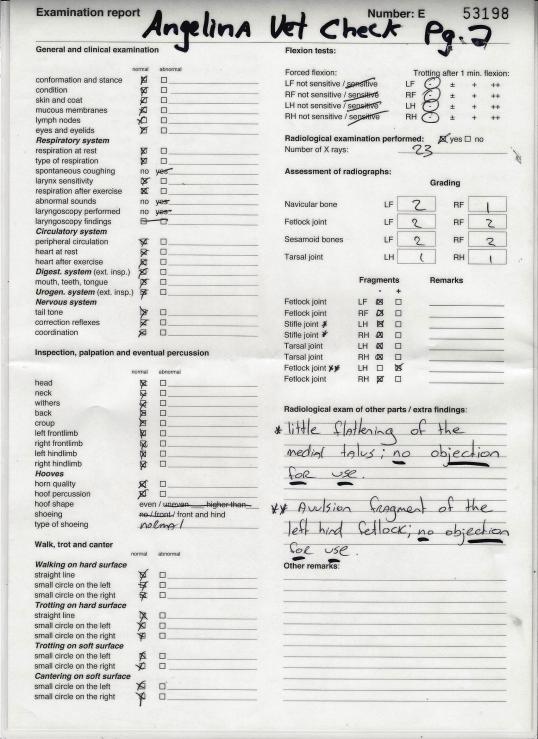 Examination report
Number: E 53198
Angelina Vet Check Pg. 2
General and clinical examination
normal abnormal
conformation and stance
condition
skin and coat
mucous membranes
lymph nodes
eyes and eyelids
Respiratory system
respiration at rest
type of respiration
spontaneous coughing no yes
larynx sensitivity
respiration after exercise
abnormal sounds no yes
laryngoscopy performed no yes
laryngoscopy findings
Circulatory system
peripheral circulation
heart at rest
heart after exercise
Digest. system (ext. insp.)
mouth, teeth, tongue
Urogen. system (ext. insp.)
Nervous system
tail tone
correction reflexes
coordination
Inspection, palpation and eventual percussion
normal abnormal
head
neck
withers
back
croup
left frontlimb
right frontlimb
left hindlimb
right hindlimb
Hooves
horn quality
hoof percussion
hoof shape even / uneven higher than
shoeing no / front / front and hind
type of shoeing normal
Walk, trot and canter
normal abnormal
Walking on hard surface
straight line
small circle on the left
small circle on the right
Trotting on hard surface
straight line
small circle on the left
small circle on the right
Trotting on soft surface
small circle on the left
small circle on the right
Cantering on soft surface
small circle on the left
small circle on the right
Flexion tests:
Forced flexion: Trotting after 1 min. flexion:
LF not sensitive / sensitive LF - ± + ++
RF not sensitive / sensitive RF - ± + ++
LH not sensitive / sensitive LH - ± + ++
RH not sensitive / sensitive RH - ± + ++
Radiological examination performed: yes no
Number of X rays: 23
Assessment of radiographs:
Grading
Navicular bone LF 2 RF 1
Fetlock joint LF 2 RF 2
Sesamoid bones LF 2 RF 2
Tarsal joint LH 1 RH 1
Fragments Remarks
- +
Fetlock joint LF
Fetlock joint RF
Stifle joint * LH
Stifle joint * RH
Tarsal joint LH
Tarsal joint RH
Fetlock joint ** LH
Fetlock joint RH
Radiological exam of other parts / extra findings:
* little flattening of the
medial talus; no objection
for use.
** Avulsion fragment of the
left hind fetlock; no objection
for use.
Other remarks: